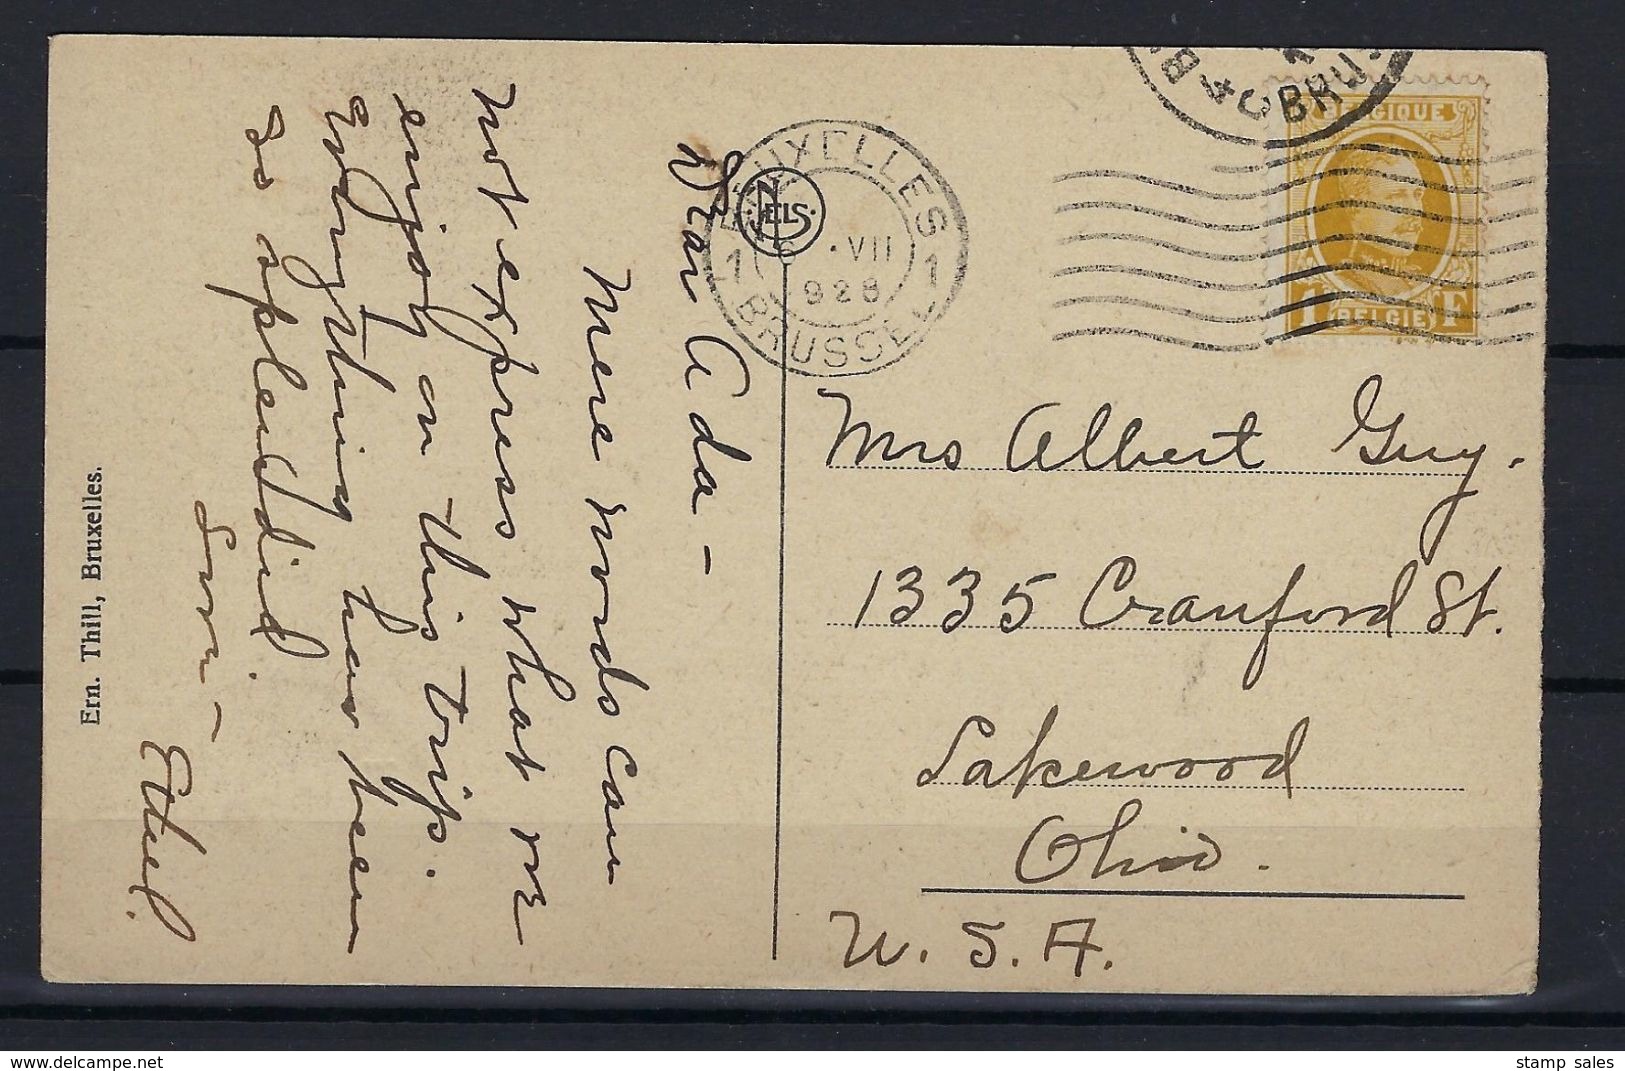 Dear Ada -
Mere words can
not express what we
enjoy on this trip.
Everything has been
so splendid.
Love -
Ethel.
Ern. Thill, Bruxelles.
NELS
BRUXELLES
1 VII 1
928
BRUSSEL
BELGIQUE
1 F
BELGIE
Mrs Albert Guy.
1335 Cranford St.
Lakewood
Ohio.
U.S.A.
delcampe.net
stamp_sales